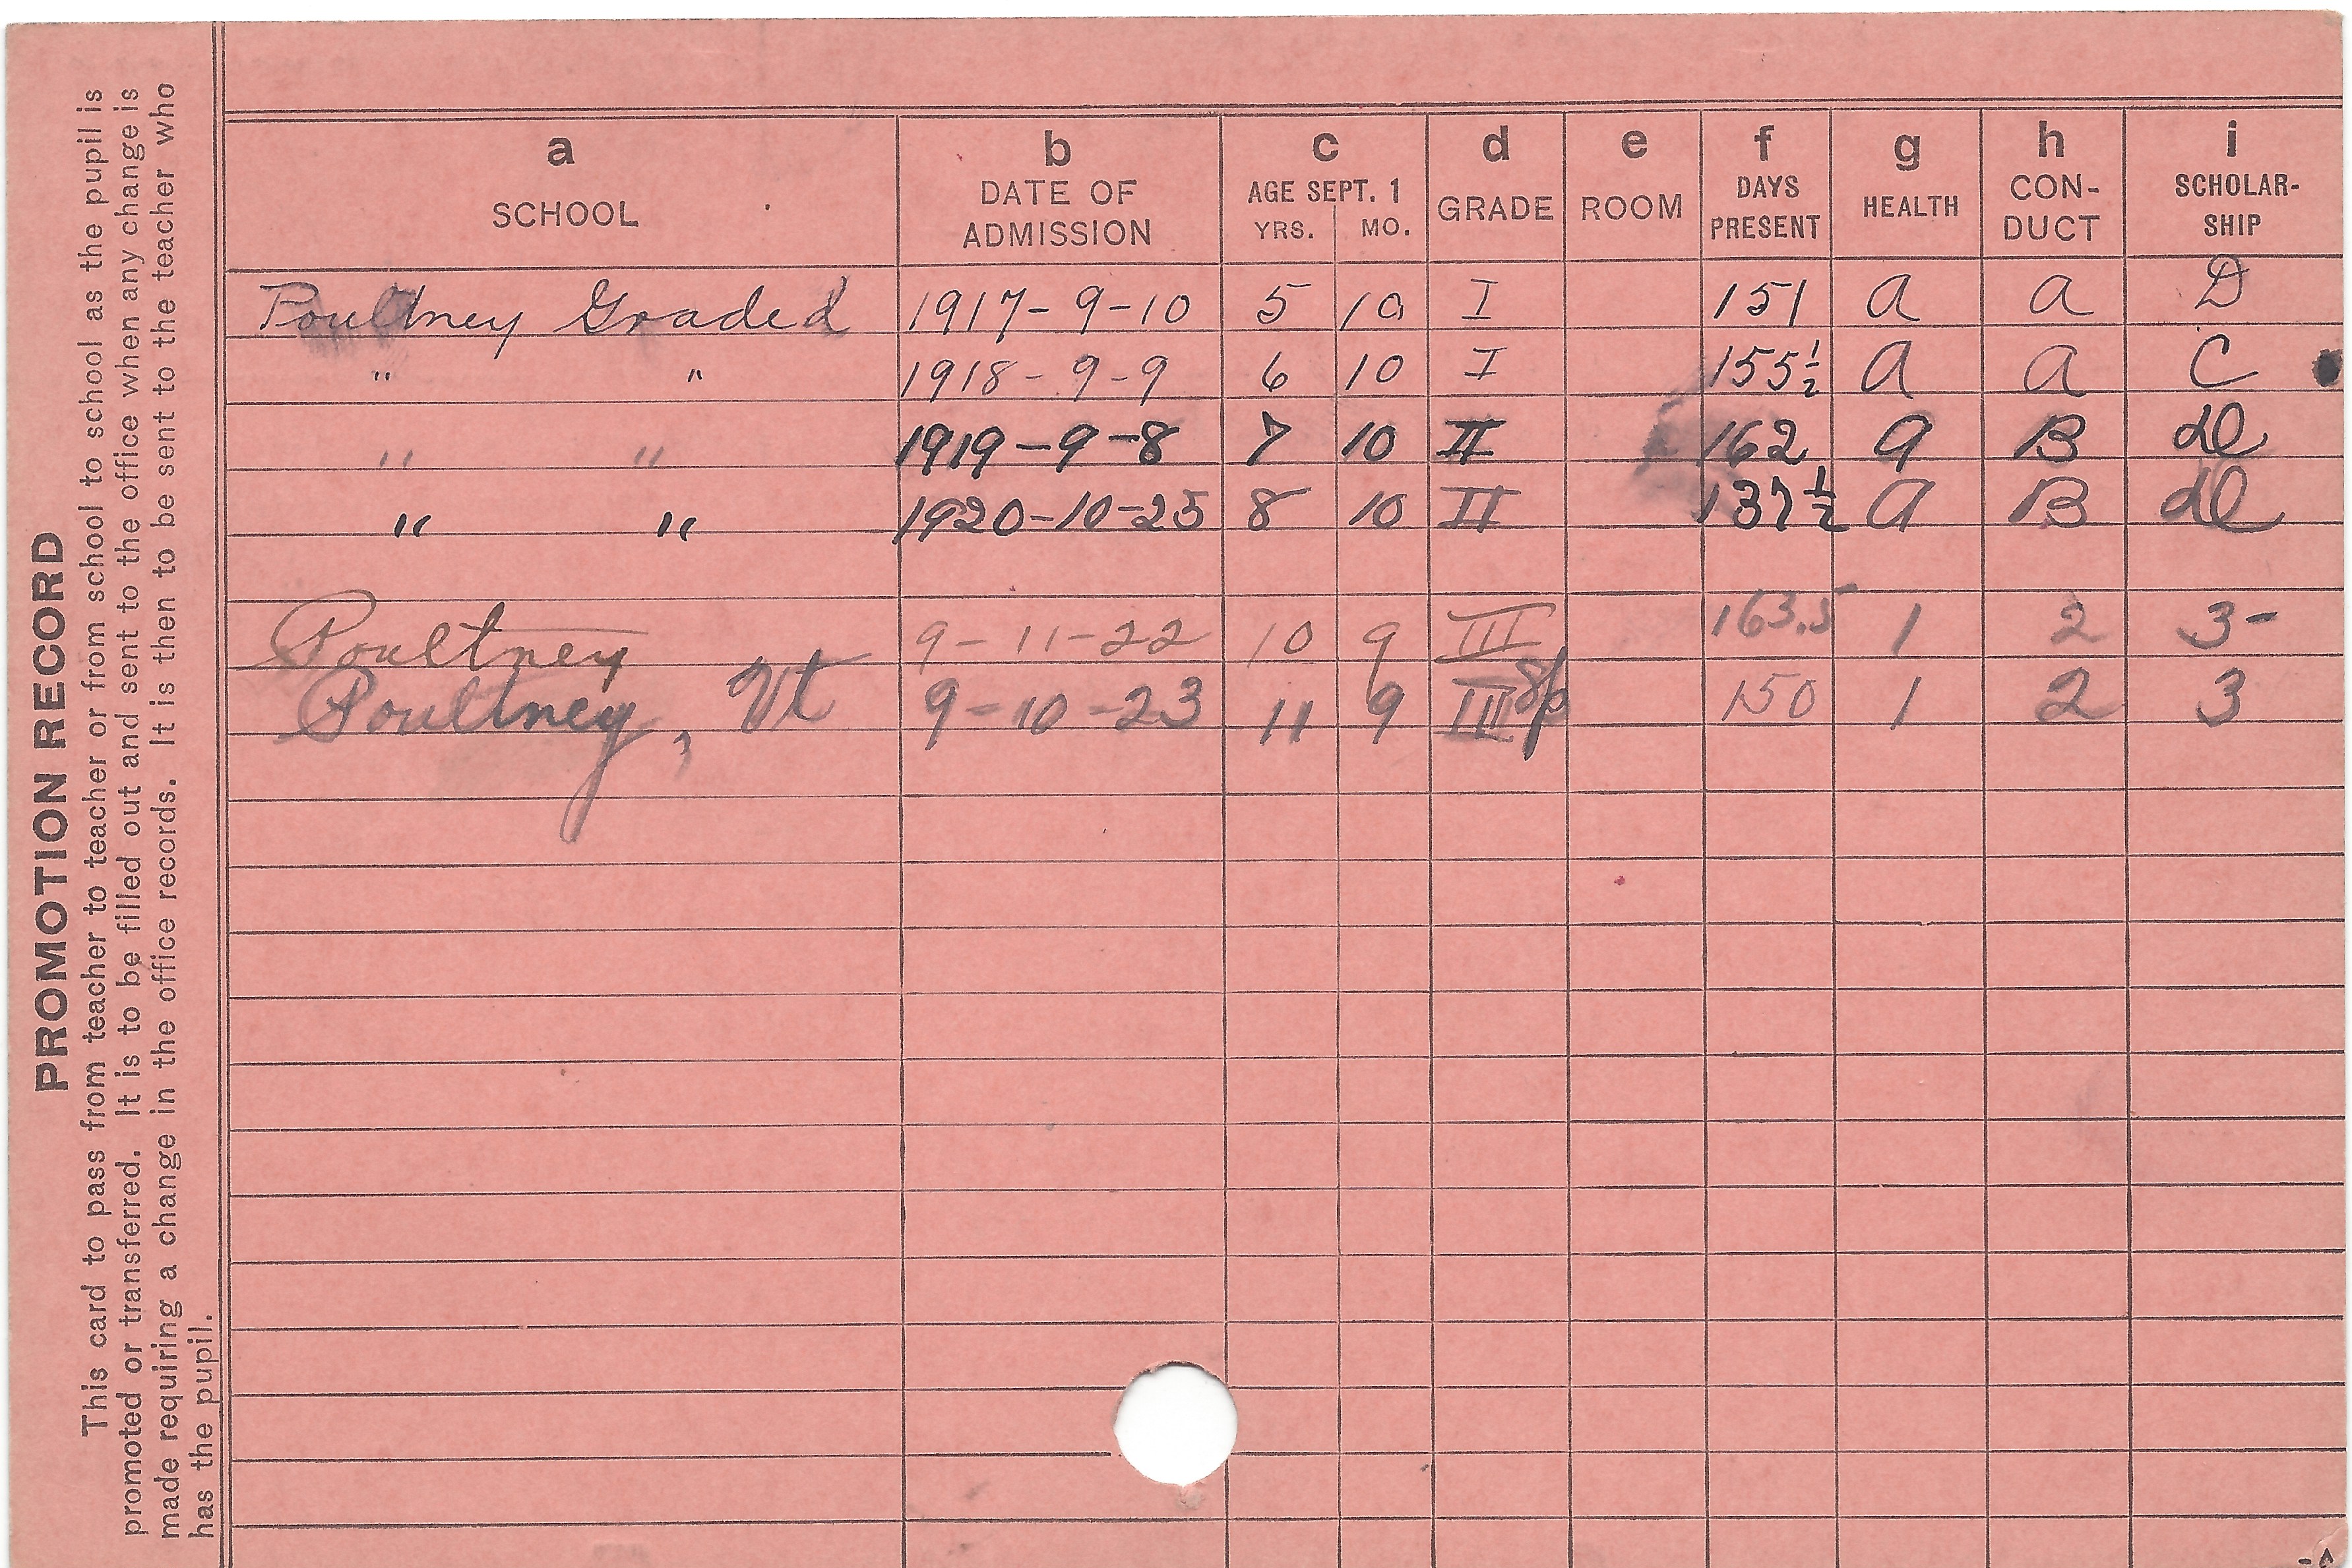 PROMOTION RECORD
This card to pass from teacher to teacher or from school to school as the pupil is
promoted or transferred. It is to be filled out and sent to the office when any change is
made requiring a change in the office records. It is then to be sent to the teacher who
has the pupil.
a b c d e f g h i
SCHOOL DATE OF ADMISSION AGE SEPT. 1 YRS. MO. GRADE ROOM DAYS PRESENT HEALTH CON-DUCT SCHOLAR-SHIP
Poultney Graded 1917-9-10 5 10 I 151 a a D
" " 1918-9-9 6 10 I 155½ a a C
" " 1919-9-8 7 10 II 162 a B
" " 1920-10-25 8 10 II 137½ a B
Poultney 9-11-22 10 9 III 163.5 1 2 3-
Poultney, Vt 9-10-23 11 9 III Sp 150 1 2 3